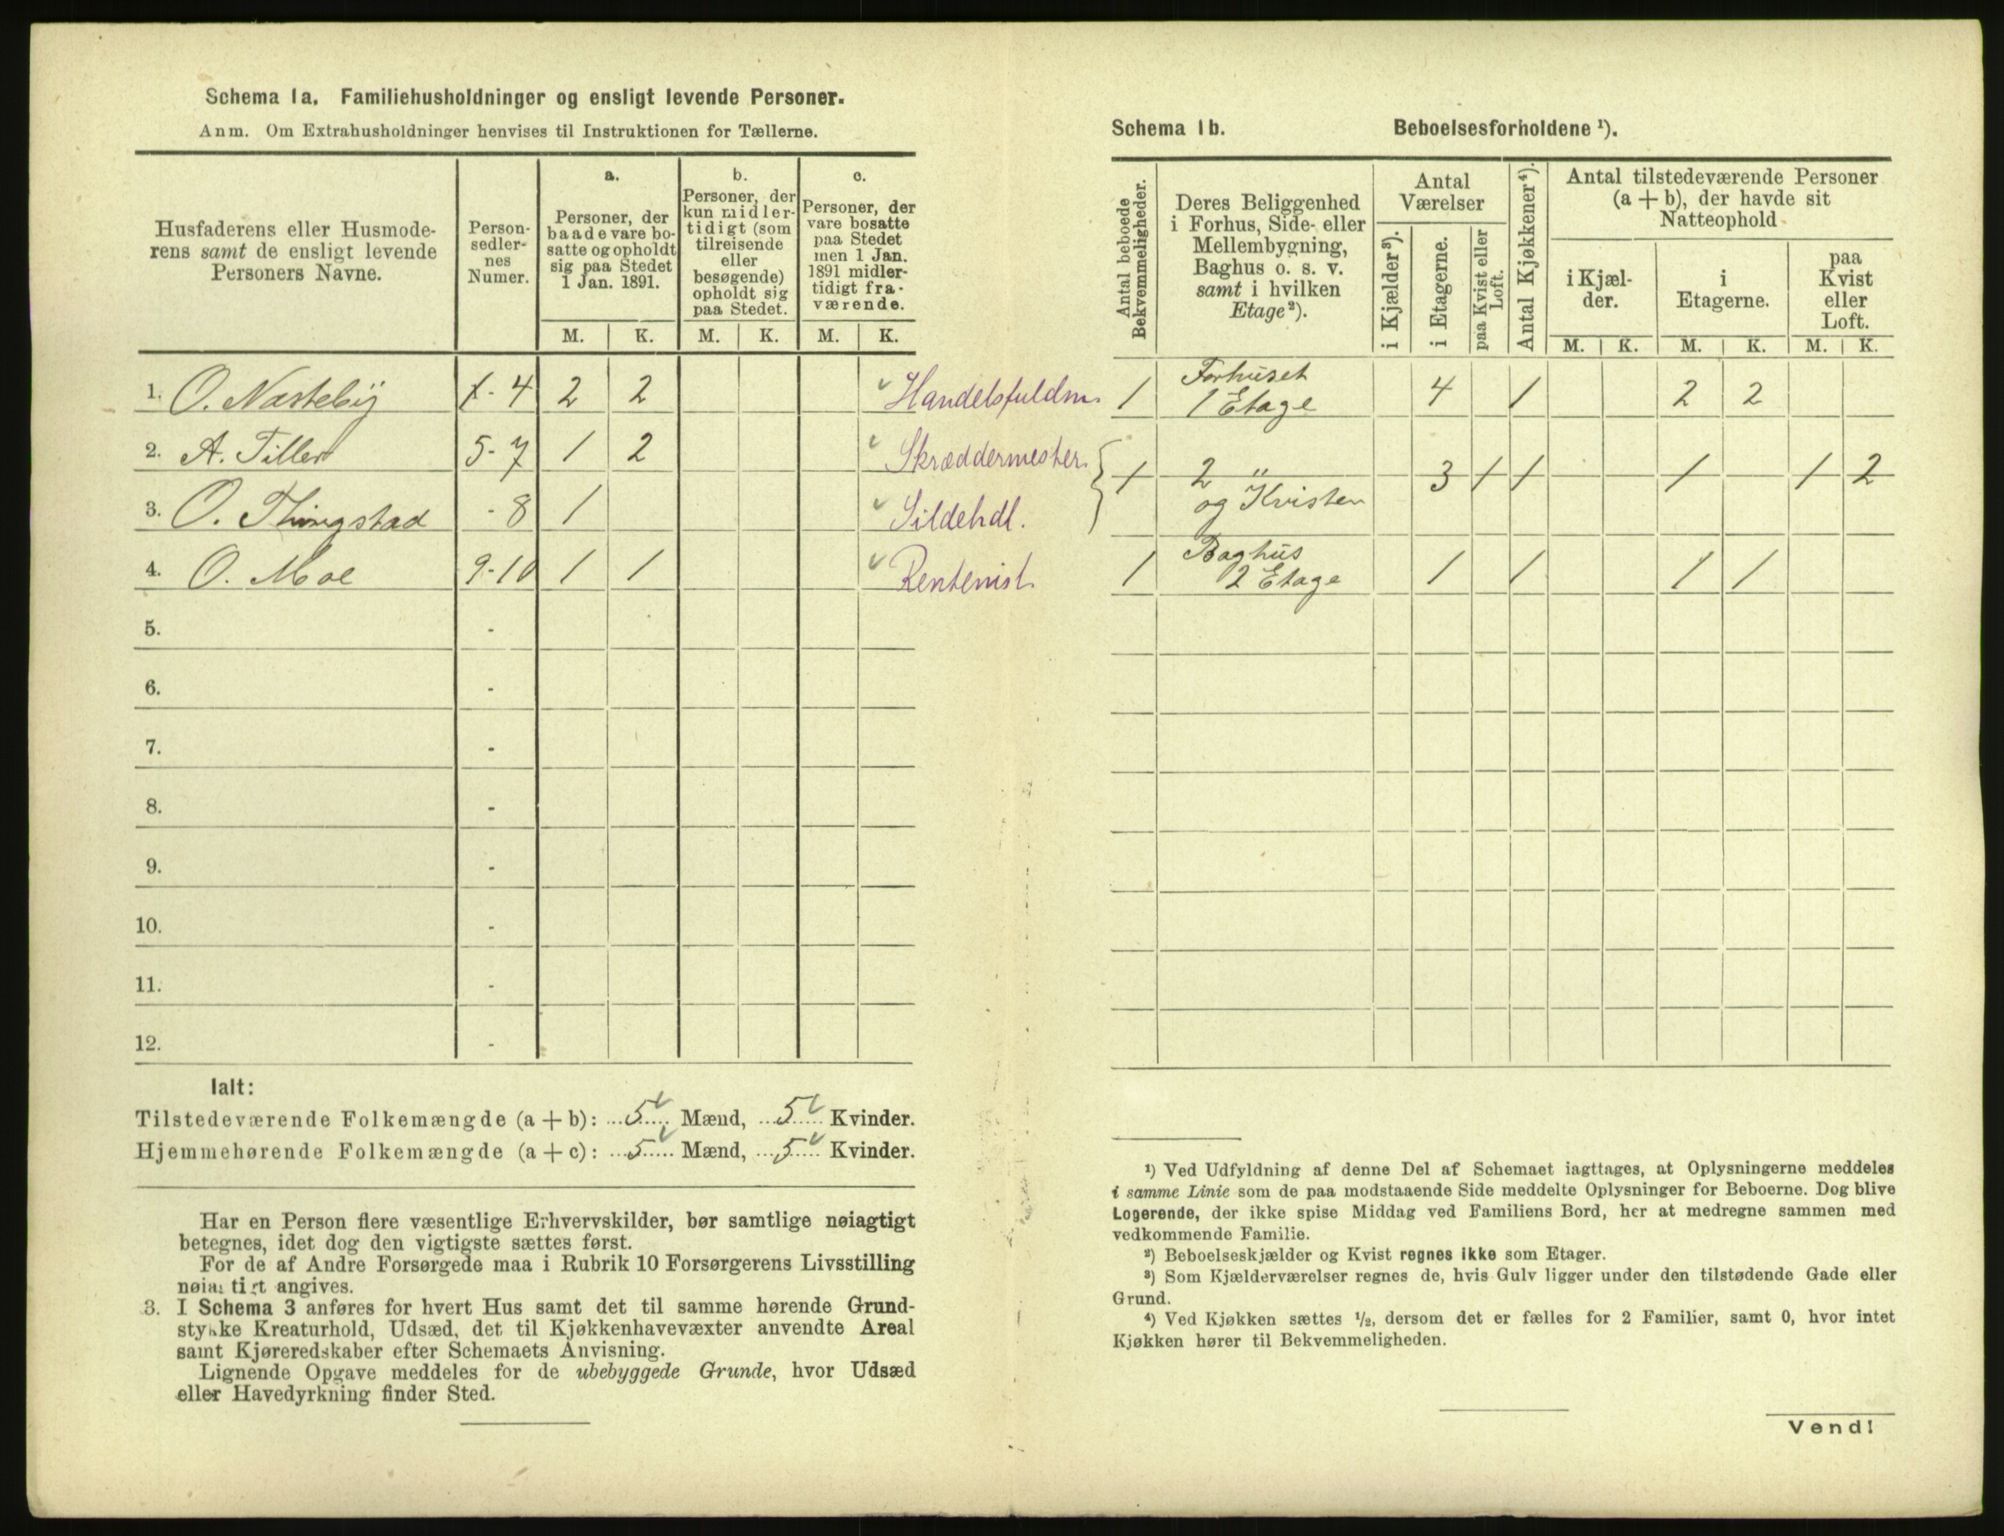 Schema 1a. Familiehusholdninger og ensligt levende Personer.
Anm. Om Extrahusholdninger henvises til Instruktionen for Tællerne.
Husfaderens eller Husmoderens samt de ensligt levende Personers Navne.
Personsedlernes Numer.
a. Personer, der baade vare bosatte og opholdt sig paa Stedet 1 Jan. 1891.
b. Personer, der kun midlertidigt (som tilreisende eller besøgende) opholdt sig paa Stedet.
c. Personer, der vare bosatte paa Stedet men 1 Jan. 1891 midlertidigt fraværende.
M. K. M. K. M. K.
1. O. Næsteby 1-4 2 2 Handelsfuldm.
2. A. Tiller 5-7 1 2 Skræddermester
3. O. Thingstad -8 1 Sildehdl.
4. O. Moe 9-10 1 1 Rentenist
5. -
6. -
7. -
8. -
9. -
10. -
11. -
12. -
Ialt:
Tilstedeværende Folkemængde (a + b): 5 Mænd, 5 Kvinder.
Hjemmehørende Folkemængde (a + c): 5 Mænd, 5 Kvinder.
Har en Person flere væsentlige Erhvervskilder, bør samtlige nøiagtigt
betegnes, idet dog den vigtigste sættes først.
For de af Andre Forsørgede maa i Rubrik 10 Forsørgerens Livsstilling
nøiagtigt angives.
3. I Schema 3 anføres for hvert Hus samt det til samme hørende Grund-
stykke Kreaturhold, Udsæd, det til Kjøkkenhavevæxter anvendte Areal
samt Kjøreredskaber efter Schemaets Anvisning.
Lignende Opgave meddeles for de ubebyggede Grunde, hvor Udsæd
eller Havedyrkning finder Sted.
Schema 1b. Beboelsesforholdene ¹).
Antal beboede Bekvemmeligheder.
Deres Beliggenhed i Forhus, Side- eller Mellembygning, Baghus o. s. v. samt i hvilken Etage²).
Antal Værelser
i Kjælder³).
i Etagerne.
paa Kvist eller Loft.
Antal Kjøkkener⁴).
Antal tilstedeværende Personer (a + b), der havde sit Natteophold
i Kjælder.
i Etagerne.
paa Kvist eller Loft.
M. K. M. K. M. K.
1 Forhuset 1 Etage 4 1 2 2
1 2 " og Kvisten 3 1 1 1 1 2
1 Baghus 2 Etage 1 1 1 1
¹) Ved Udfyldning af denne Del af Schemaet iagttages, at Oplysningerne meddeles
i samme Linie som de paa modstaaende Side meddelte Oplysninger for Beboerne. Dog blive
Logerende, der ikke spise Middag ved Familiens Bord, her at medregne sammen med
vedkommende Familie.
²) Beboelseskjælder og Kvist regnes ikke som Etager.
³) Som Kjælderværelser regnes de, hvis Gulv ligger under den tilstødende Gade eller
Grund.
⁴) Ved Kjøkken sættes ½, dersom det er fælles for 2 Familier, samt 0, hvor intet
Kjøkken hører til Bekvemmeligheden.
Vend!